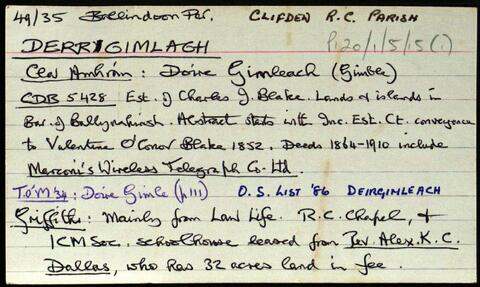 49/35 Ballindoon Par. CLIFDEN R.C. PARISH
DERRIGIMLAGH P.20/1/5/5(1)
Cla Amhrán: Doire Gimleach (Gimble)
CDB 5428 Est. of Charles J. Blake. Lands & islands in
Bar. of Ballynahinch. Abstract starts with Inc. Est. Ct. conveyance
to Valentine O'Conor Blake 1852. Deeds 1864-1910 include
Marconi's Wireless Telegraph Co. Ltd.
T.O'M '34: Doire Gimle (p 111) O.S. LIST '86 DEIRGIMLEACH
Griffith: Mainly from Law Life. R.C. Chapel, &
ICM Soc. schoolhouse leased from Rev. Alex. K. C.
Dallas, who has 32 acres land in fee.